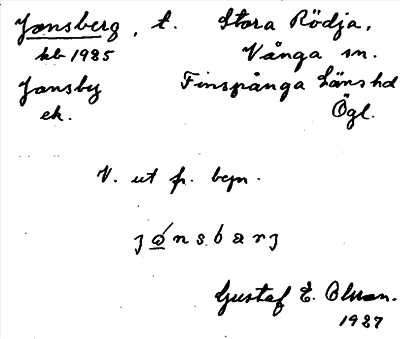 Jonsberg, t. Stora Rödja,
kb 1985 Vånga sn.
Jonsby Finspånga Läns hd
ek. Ögl.
V. ut fr. byn.
jónsbarj
Gustaf E. Olsson.
1927